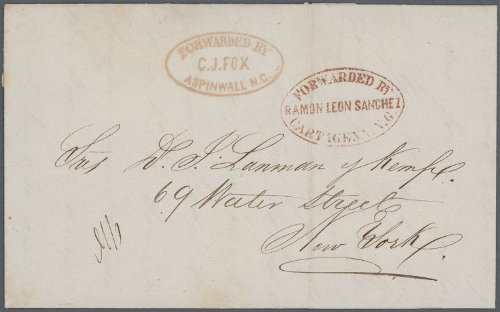 FORWARDED BY
C.J. FOX
ASPINWALL N.G.
FORWARDED BY
RAMON LEON SANCHEZ
CARTAGENA N.G.
Sres D. J. Lanman y Kemp.
69 Water Street
New York.